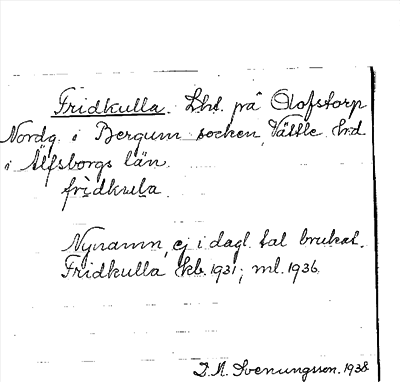 Fridkulla. Lht. på Olofstorp
Nordg. i Bergum socken, Vättle hrd
i Älfsborgs län.
frìdkula
Nynamn, ej i dagl. tal brukat.
Fridkulla kb. 1931; ml. 1936
S. A. Svenungsson. 1938